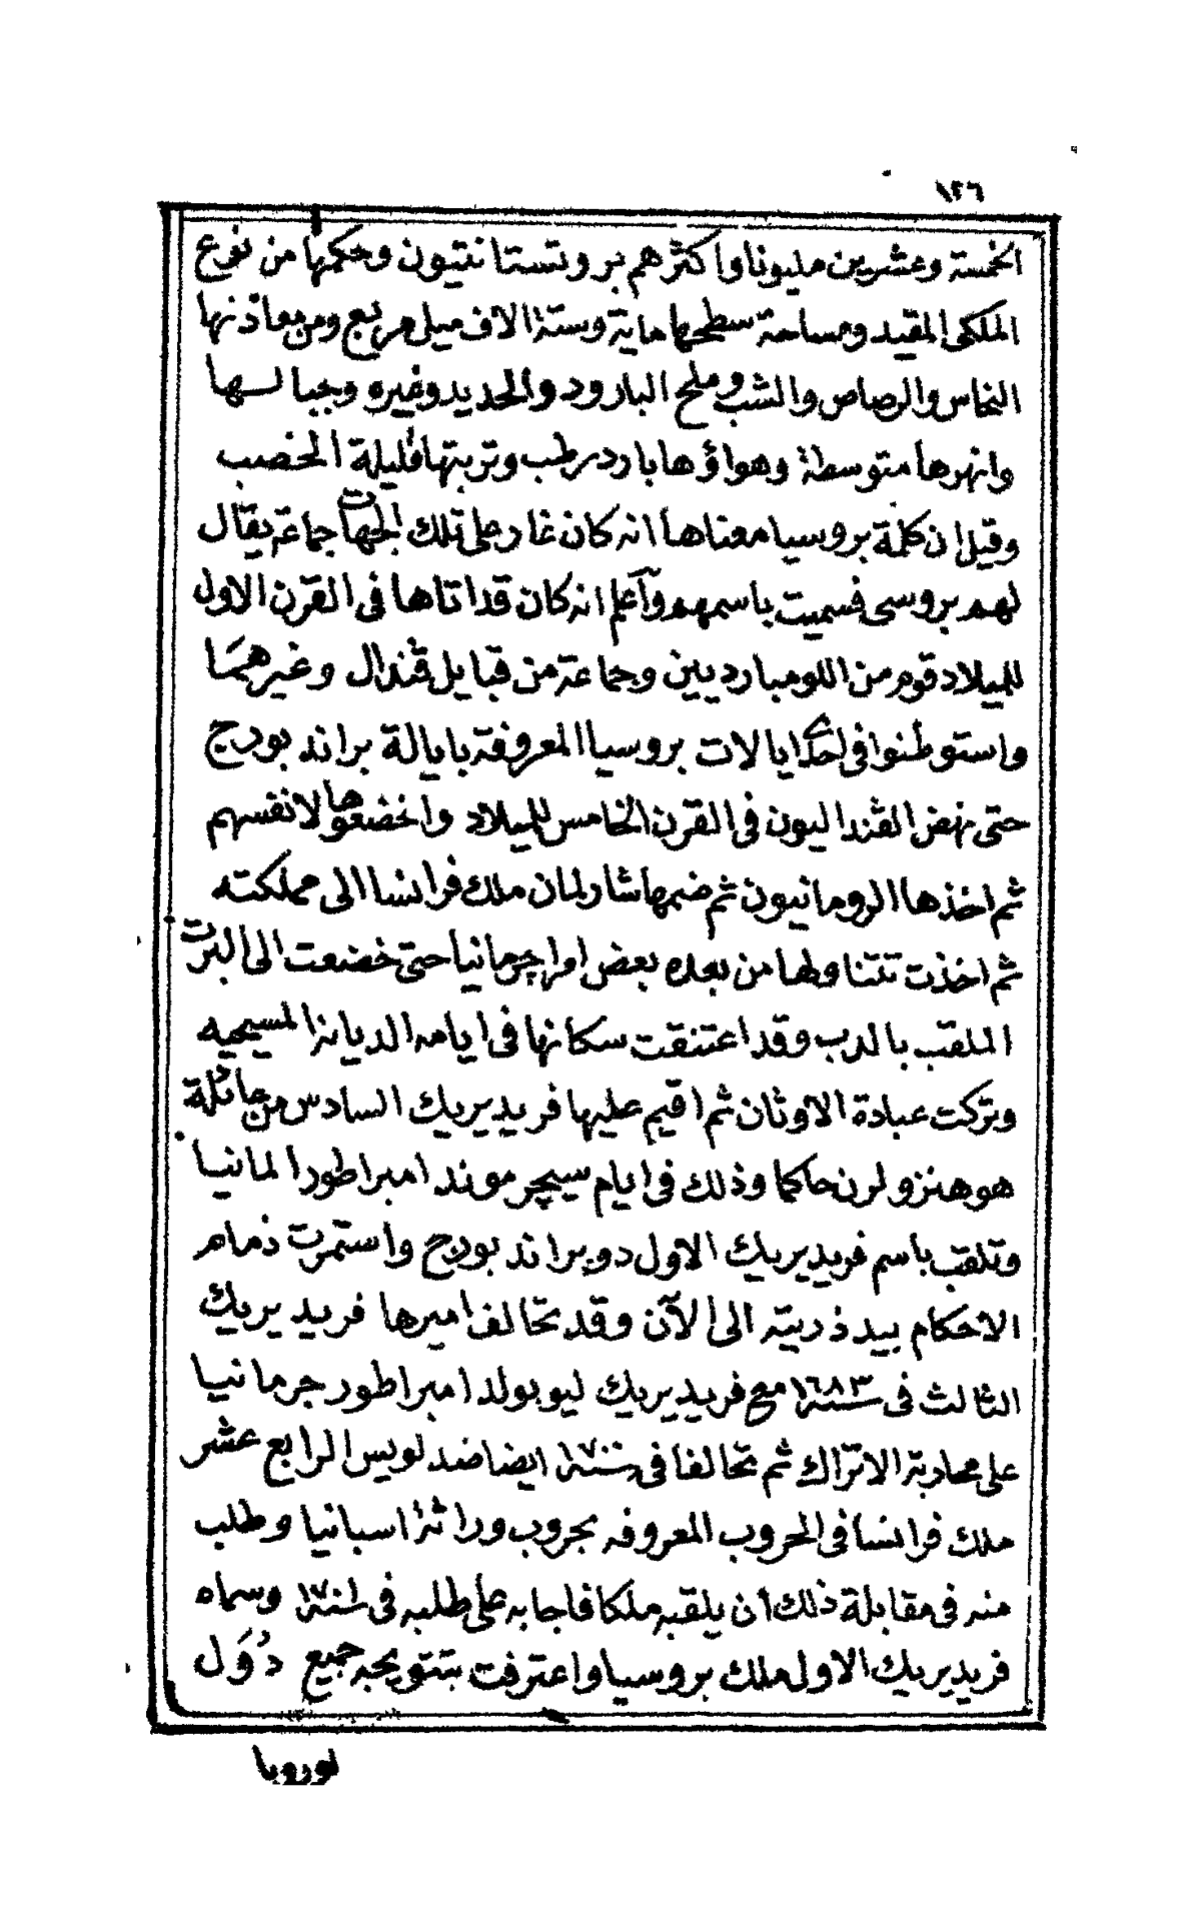 ١٢٦
الخمسة وعشرين مليونا واكثرهم بروتستانتيون وحكمها من نوع
الملكى المقيد ومساحة سطحها ماية وستة الاف ميل مربع ومن معادنها
النحاس والرصاص والشب وملح البارود والحديد وغيره وجبالها
وانهرها متوسطة وهواؤها بارد رطب وتربتها قليلة الخصب
وقيل ان كلمة بروسيا معناها انه كان غار على تلك الجهات جماعة يقال
لهم بروسى فسميت باسمهم وآعلم انه كان قد اتاها فى القرن الاول
للميلاد قوم من اللومبارديين وجماعة من قبايل ڤندال وغيرهما
واستوطنوا فى احدى ايالات بروسيا المعروفة بايالة براند بورج
حتى نهض الڤنداليون فى القرن الخامس للميلاد واخضعوها لانفسهم
ثم اخذها الرومانيون ثم ضمها شارلمان ملك فرانسا الى مملكته
ثم اخذت تتناولها من بعده بعض امراجرمانيا حتى خضعت الى البرت
الملقب بالدب وقد اعتنقت سكانها فى ايامه الديانة المسيحيه
وتركت عبادة الاوثان ثم اقيم عليها فريديريك السادس من عائلة
هوهنزولرن حاكما وذلك فى ايام سيجرموند امبراطور المانيا
وتلقب باسم فريديريك الاول دوبراند بورج واستمرت زمام
الاحكام بيد ذريته الى الآن وقد تحالف اميرها فريديريك
الثالث فى سنة ١٦٨٣ مع فريديريك ليوبولد امبراطور جرمانيا
على محاربة الاتراك ثم تحالفا فى سنة ١٧٠٠ ايضا ضد لويس الرابع عشر
ملك فرانسا فى الحروب المعروفه بحروب وراثة اسبانيا وطلب
منه فى مقابلة ذلك ان يلقبه ملكا فاجابه على طلبه فى سنة ١٧٠١ وسماه
فريديريك الاول ملك بروسيا واعترفت بتتويجه جميع دُوَل
اوروبا